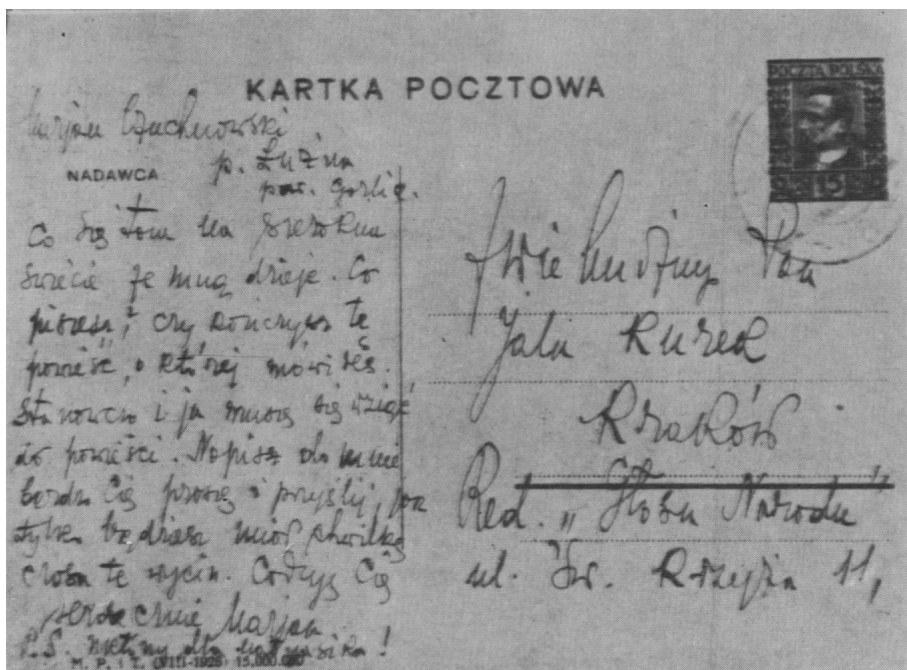 KARTKA POCZTOWA
POCZTA POLSKA
15
Marjan Czuchnowski
p. Łużna
NADAWCA
pow. Gorlice.
Co się tam na szerokim
świecie ze mną dzieje. Co
piszesz, czy kończysz tę
powieść, o której mówiłeś.
Stanowczo i ja muszę się wziąć
do powieści. Napisz do mnie
bardzo Cię proszę i przyślij, jak
tylko będziesz miał chwilkę
czasu te wycin. Całuję Cię
serdecznie Marjan
P.S. dla !
M. P. i T. (VIII-1928) 15.000.000
Pan
Jalu Kurek
Kraków
Red. „Głosu Narodu"
ul. Św. Krzyża 11,